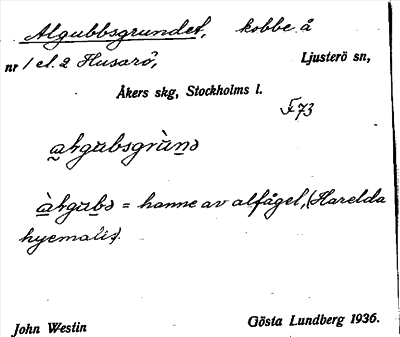 Algubbsgrundet, kobbe å
nr 1 el. 2 Husarö, Ljusterö sn,
Åkers skg, Stockholms l.
F73
àlgubə = hanne av alfågel, (Harelda
hyemalis).
John Westin Gösta Lundberg 1936.